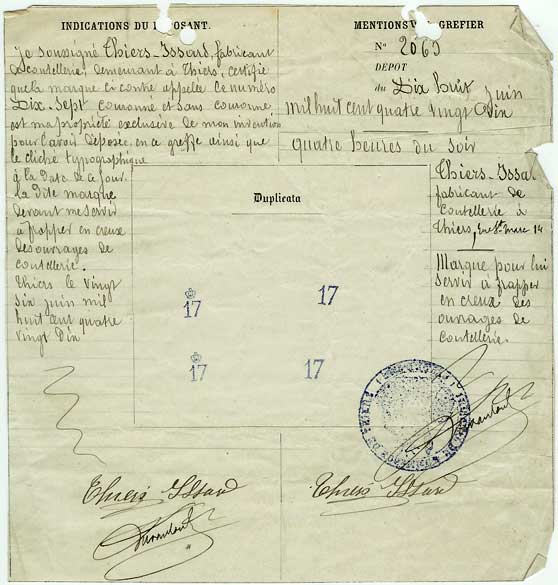 INDICATIONS DU DÉPOSANT.
Je soussigné Thiers-Issard, fabricant
de coutellerie, demeurant à Thiers, certifie
que la marque ci contre appelée ce numéro
Dix-Sept couronné et sans couronne
est ma propriété exclusive de mon invention
pour l'avoir déposée en ce greffe ainsi que
le cliché typographique
à la date de ce jour.
la dite marque
devant me servir
à frapper en creux
des ouvrages de
coutellerie.
Thiers le vingt
six juin mil
huit cent quatre
vingt Dix
MENTIONS DU GREFIER
No 2063
DÉPOT
du Dix huit Juin
mil huit cent quatre vingt Dix
quatre heures du soir
Thiers-Issard
fabricant de
coutellerie à
Thiers, 14
Marque pour lui
servir à frapper
en creux des
ouvrages de
coutellerie.
Duplicata
17 17
17 17
Thiers Issard
Thiers Issard